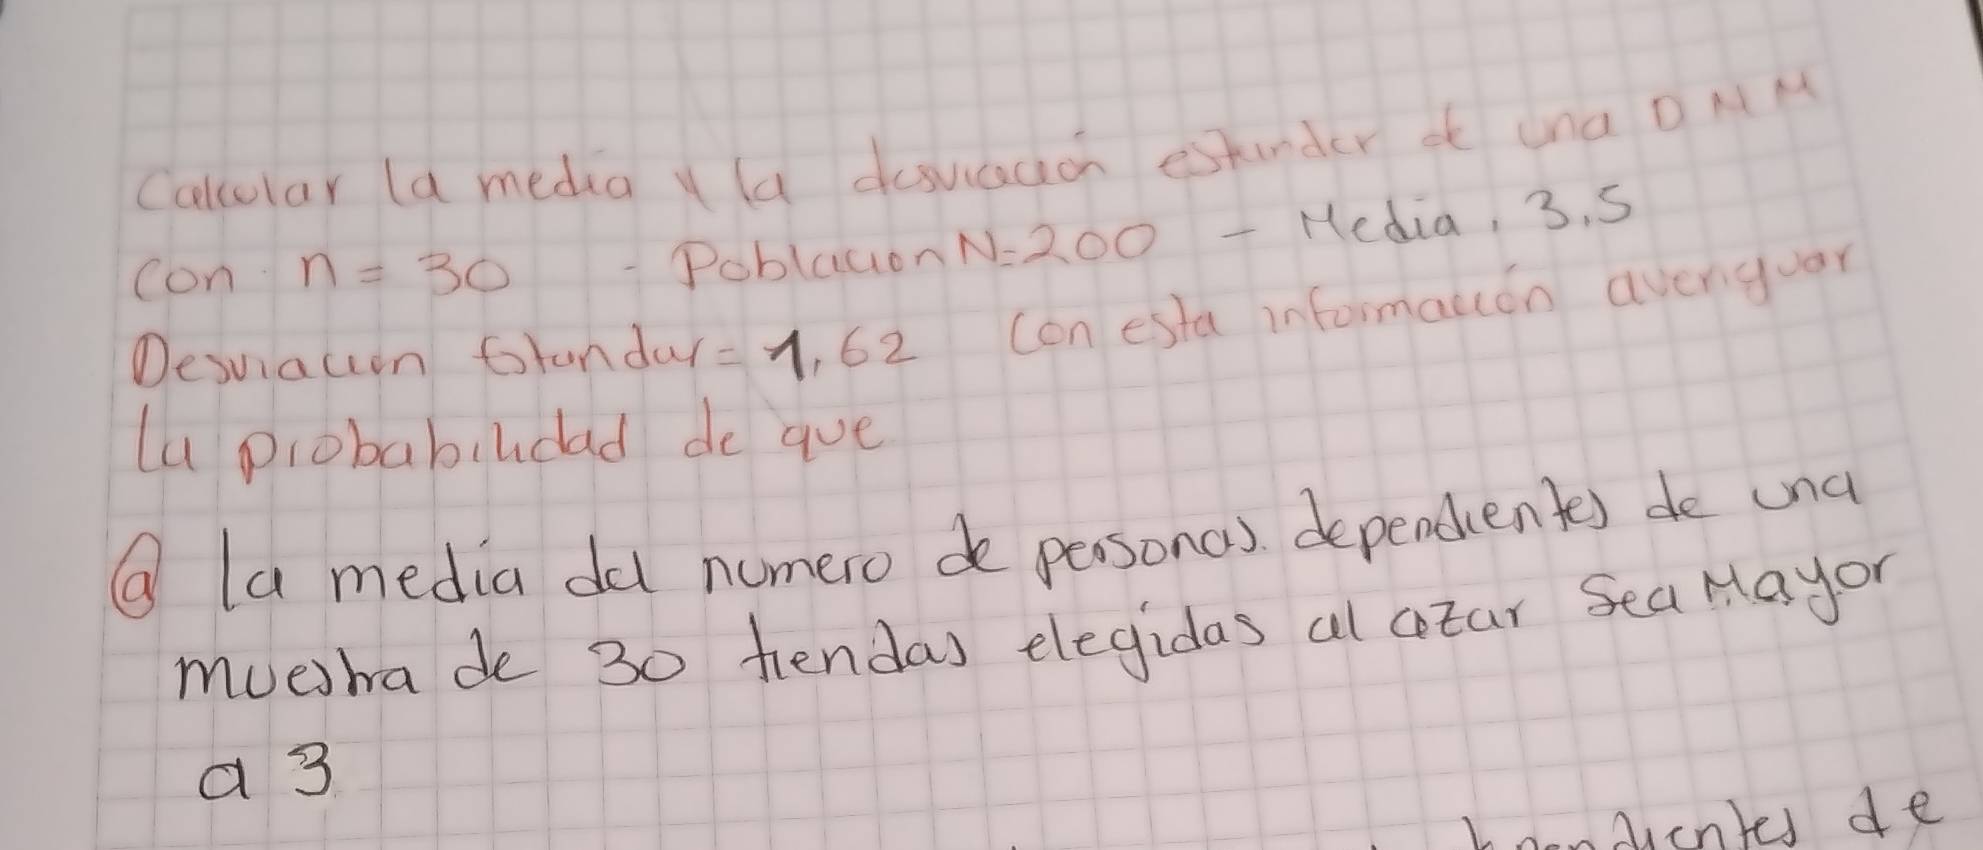 Calcular la media y la desviación estander de una DMM
con n = 30 - Poblacion N=200 - Media. 3.5
Desviacion Estandar = 1,62 Con esta información averiguar
la probabilidad de que
ⓐ la media del numero de personas dependientes de una
muestra de 30 tiendas elegidas al azar sea Mayor
a 3
de